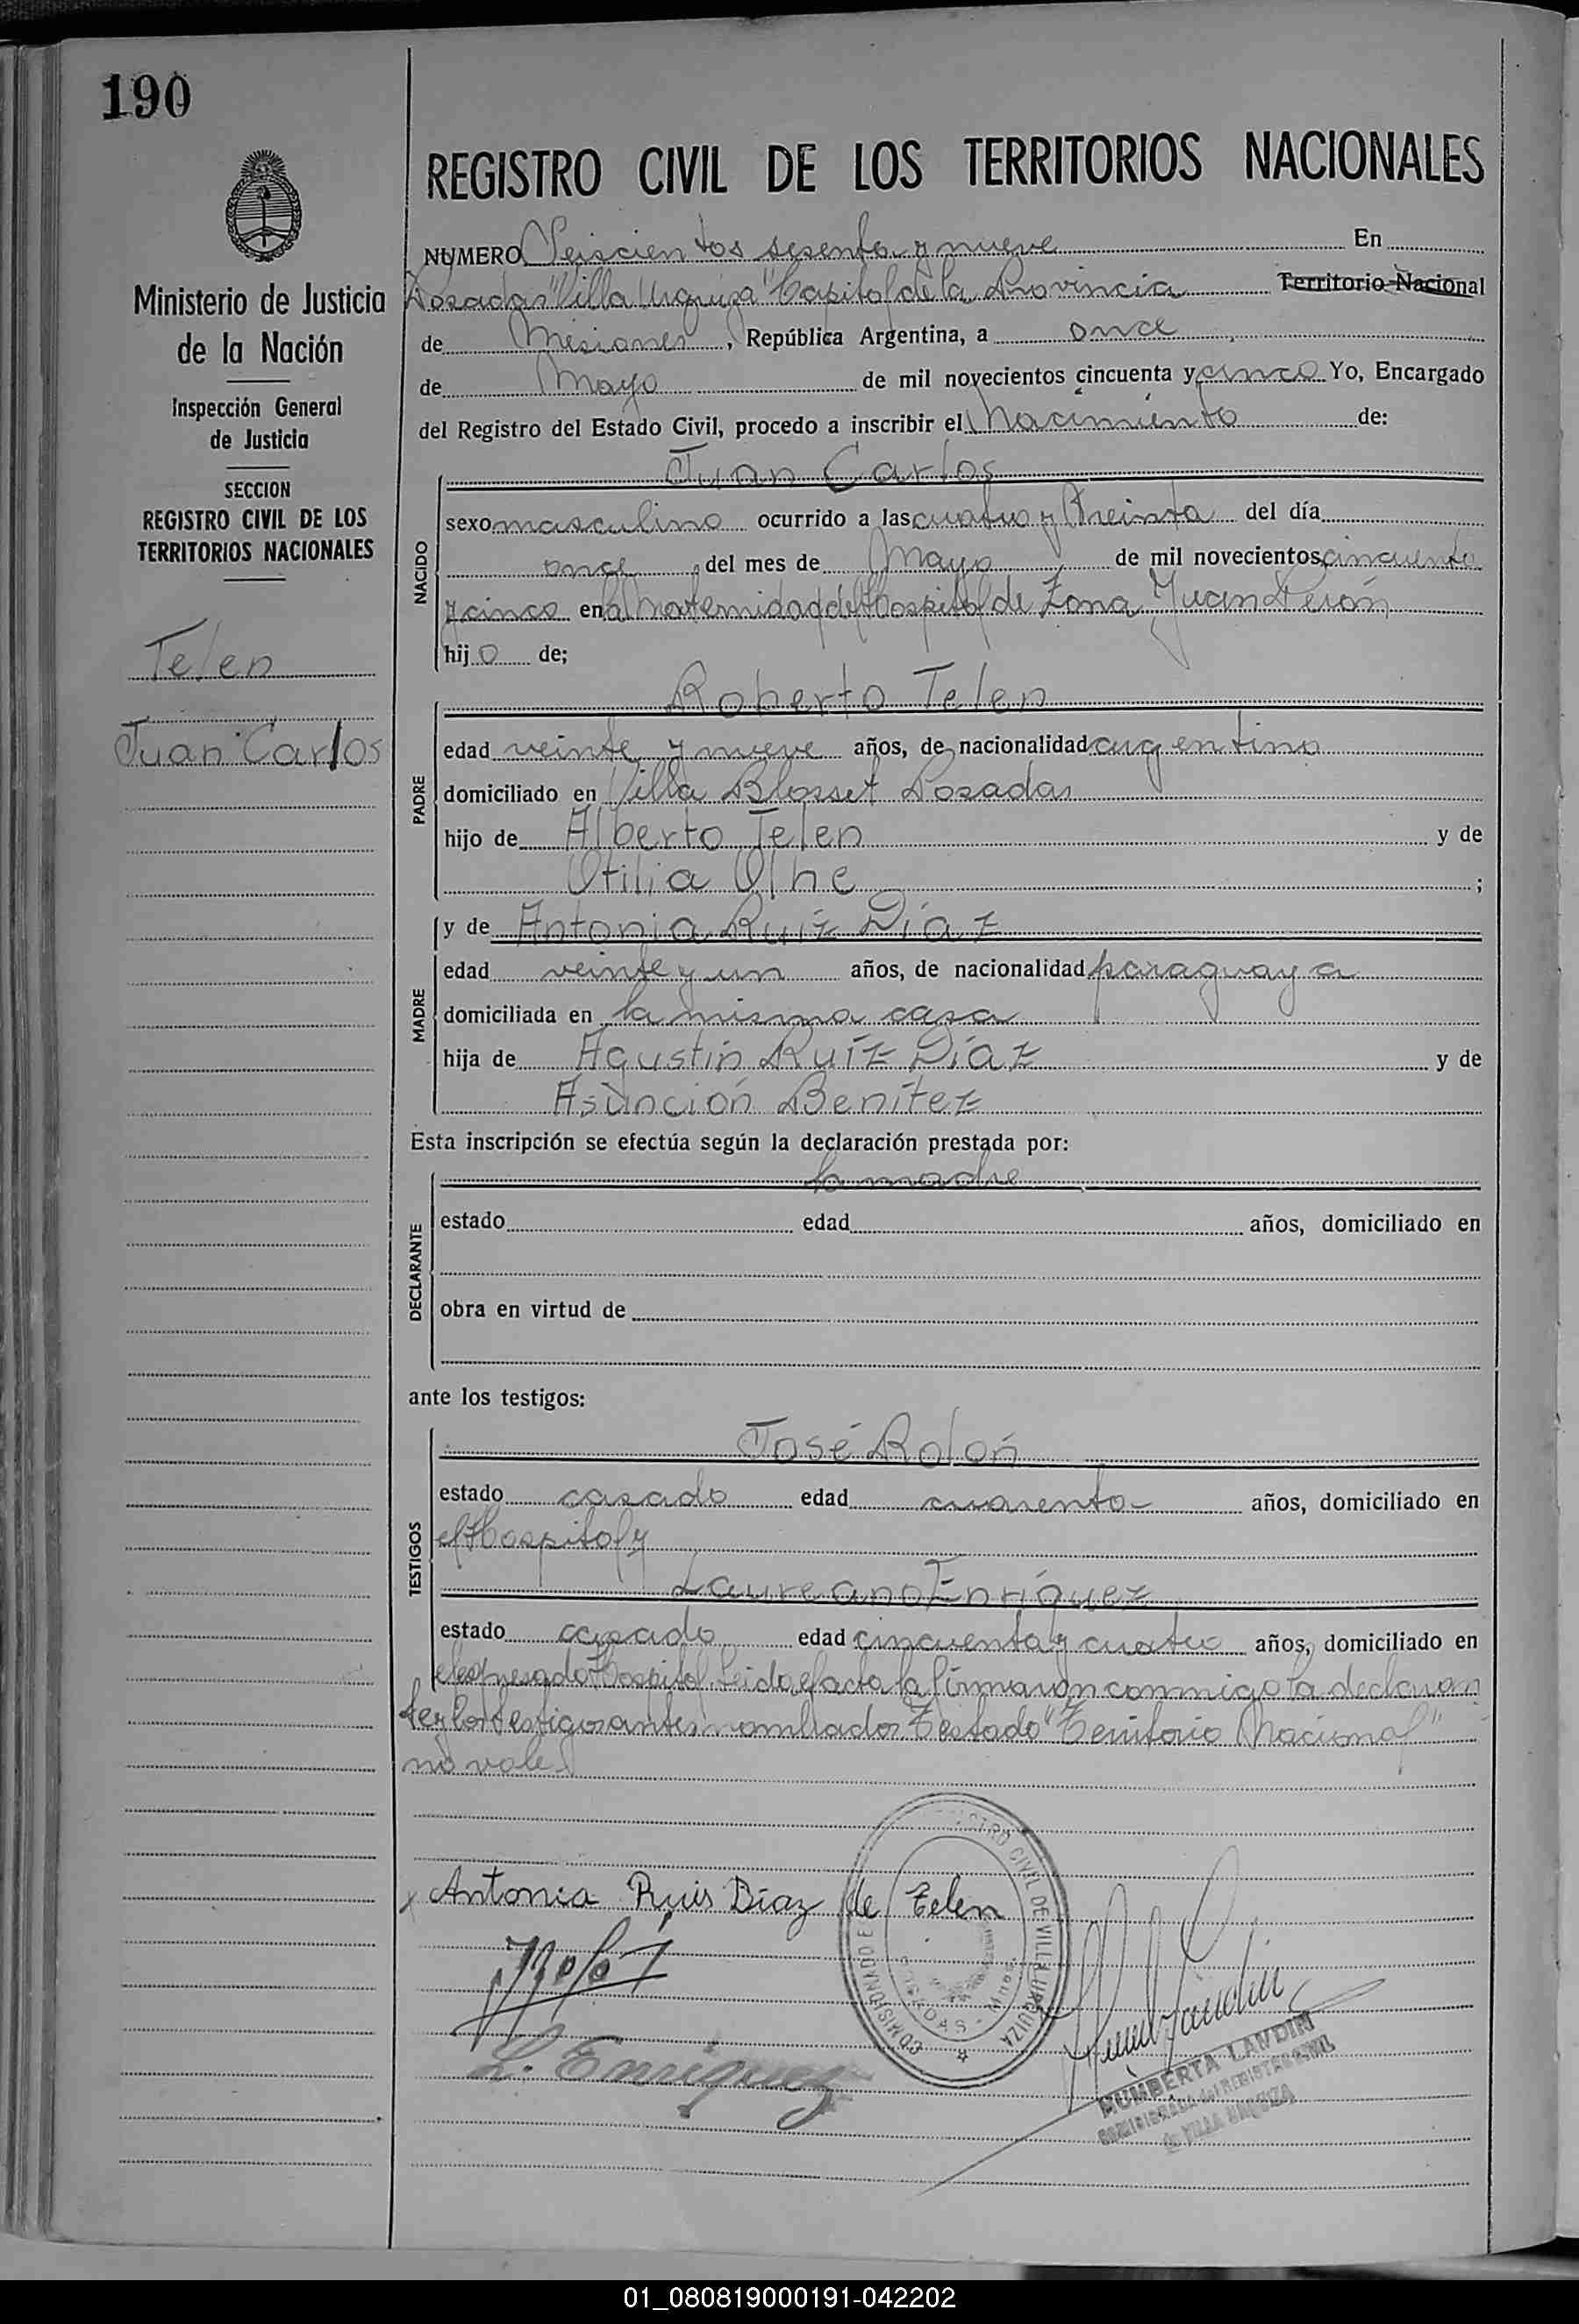 190
REGISTRO CIVIL DE LOS TERRITORIOS NACIONALES
Ministerio de Justicia
de la Nación
Inspección General
de Justicia
SECCION
REGISTRO CIVIL DE LOS
TERRITORIOS NACIONALES
Telen
Juan Carlos
NUMERO Seiscientos sesenta y nueve En
Posadas "Villa Urquiza" Capital de la Provincia Territorio Nacional
de Misiones, República Argentina, a once
de Mayo de mil novecientos cincuenta y cinco Yo, Encargado
del Registro del Estado Civil, procedo a inscribir el Nacimiento de:
NACIDO
Juan Carlos
sexo masculino ocurrido a las cuatro y treinta del día
once del mes de Mayo de mil novecientos cincuenta
y cinco en la Maternidad del Hospital de Zona Juan Perón
hijo de;
PADRE
Roberto Telen
edad veinte y nueve años, de nacionalidad argentino
domiciliado en Villa Blosset Posadas
hijo de Alberto Telen y de
Otilia Olhe ;
MADRE
y de Antonia Ruíz Díaz
edad veinte y un años, de nacionalidad paraguaya
domiciliada en la misma casa
hija de Agustín Ruíz Díaz y de
Asunción Benítez
Esta inscripción se efectúa según la declaración prestada por:
DECLARANTE
la madre
estado edad años, domiciliado en
obra en virtud de
ante los testigos:
TESTIGOS
José Rolón
estado casado edad cuarenta años, domiciliado en
el Hospital y
Laureano Enríquez
estado casado edad cincuenta y cuatro años, domiciliado en
el expresado Hospital. Leida el acta la firmaron conmigo la declaran
te y los testigos antes nombrados. Testado "Territorio Nacional"
no vale.
Antonia Ruis Díaz de Telen
L. Enriquez
REGISTRO CIVIL DE VILLA URQUIZA
COMISIONADO
POSADAS - Mnes.
HUMBERTA LANDIN
del REGISTRO CIVIL
de VILLA URQUIZA
01_080819000191-042202